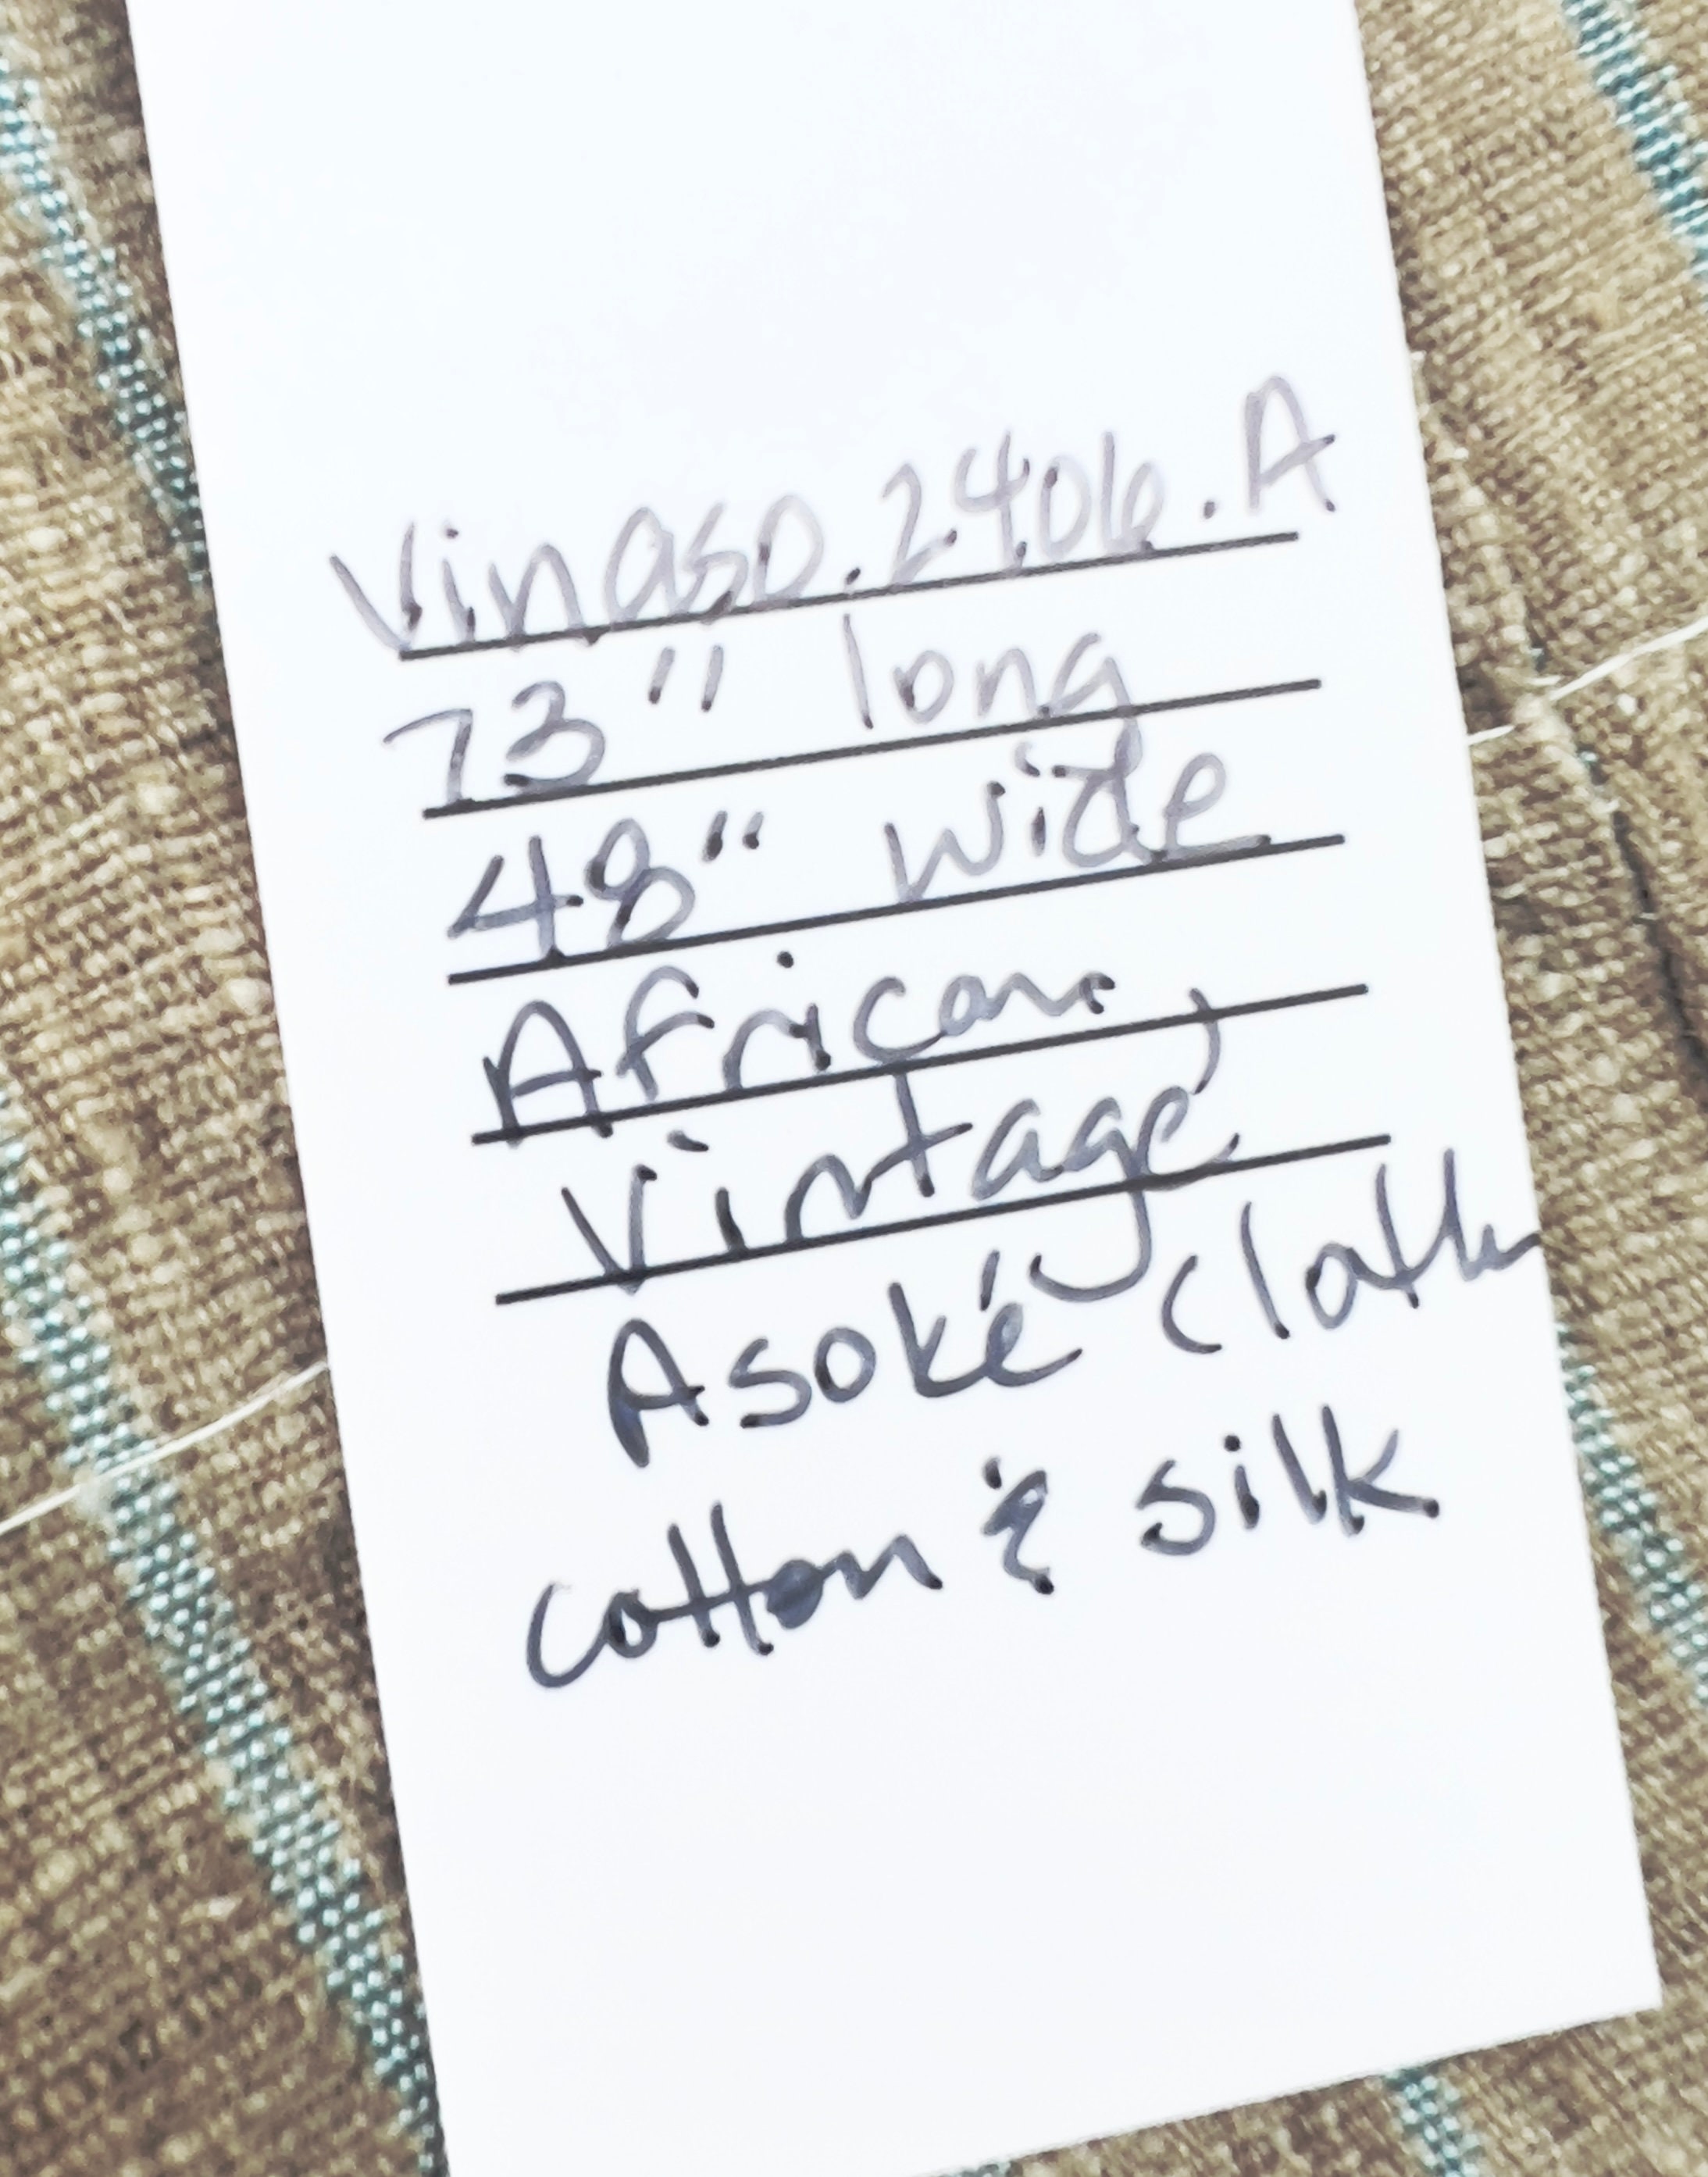 Vinaso.2406.A
73" long
48" wide
African,
Vintage
Asoké cloth
cotton & silk